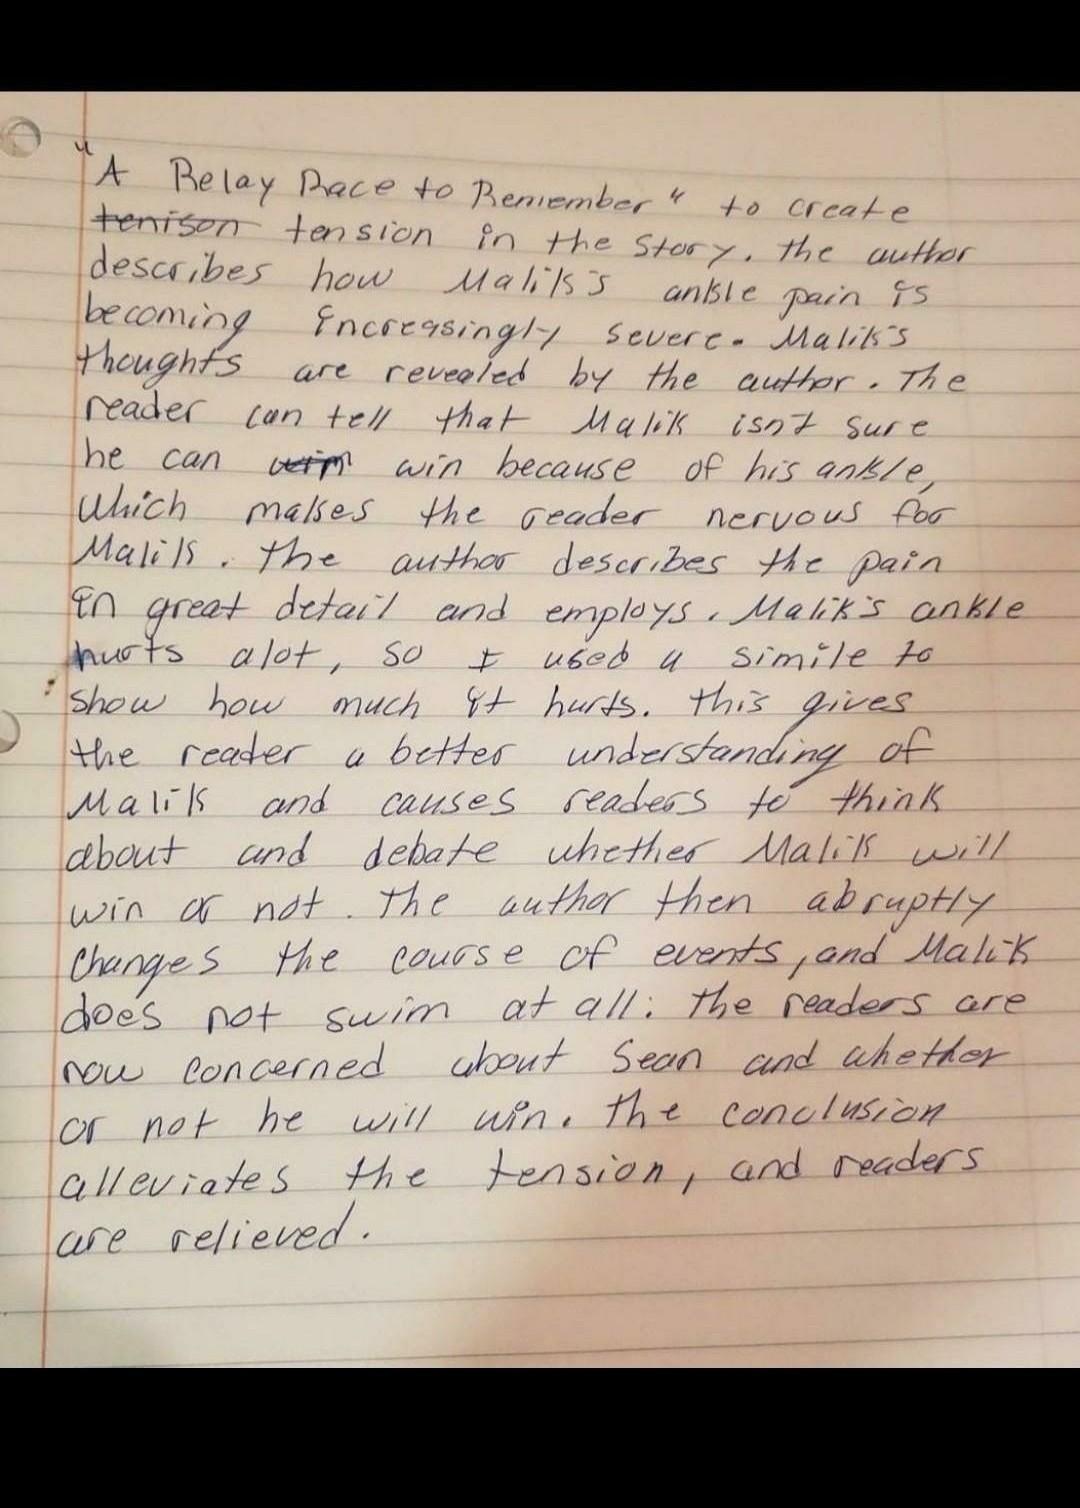 "A Relay Race to Remember" to create
tenison tension in the story. the author
describes how Malik's ankle pain is
becoming increasingly severe. Malik's
thoughts are revealed by the author. The
reader can tell that Malik isn't sure
he can win because of his ankle,
which makes the reader nervous for
Malik. the author describes the pain
in great detail and employs. Malik's ankle
hurts alot, so I used a simile to
show how much it hurts. this gives
the reader a better understanding of
Malik and causes readers to think
about and debate whether Malik will
win or not. The author then abruptly
changes the course of events, and Malik
does not swim at all. the readers are
now concerned about Sean and whether
or not he will win. the conclusion
alleviates the tension, and readers
are relieved.